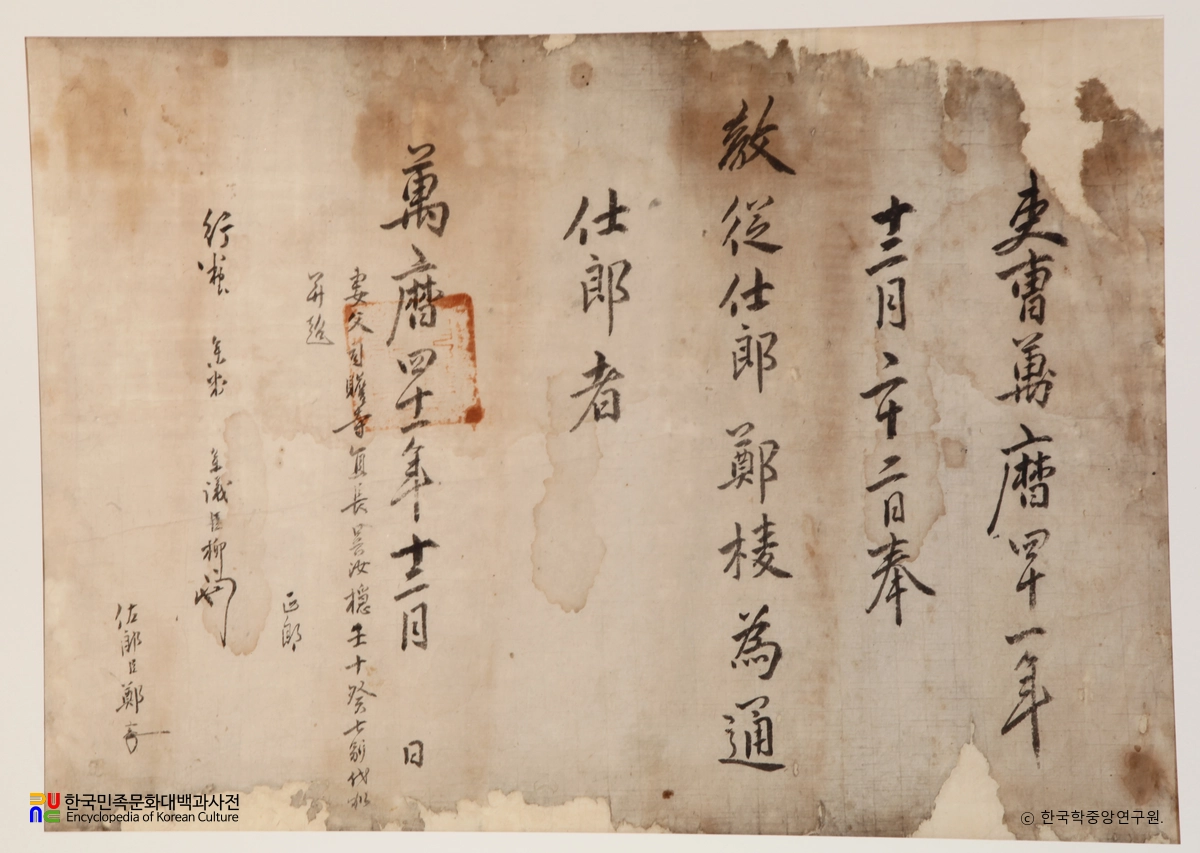 吏曹萬曆四十一年
十二月二十二日奉
教從仕郎鄭稜為通
仕郎者
萬曆四十一年十二月 日
妻父司贍寺直長吳汝穩壬十癸七別代加
正郎
行判 參判 參議臣柳
佐郎臣鄭
한국민족문화대백과사전
Encyclopedia of Korean Culture
ⓒ 한국학중앙연구원.